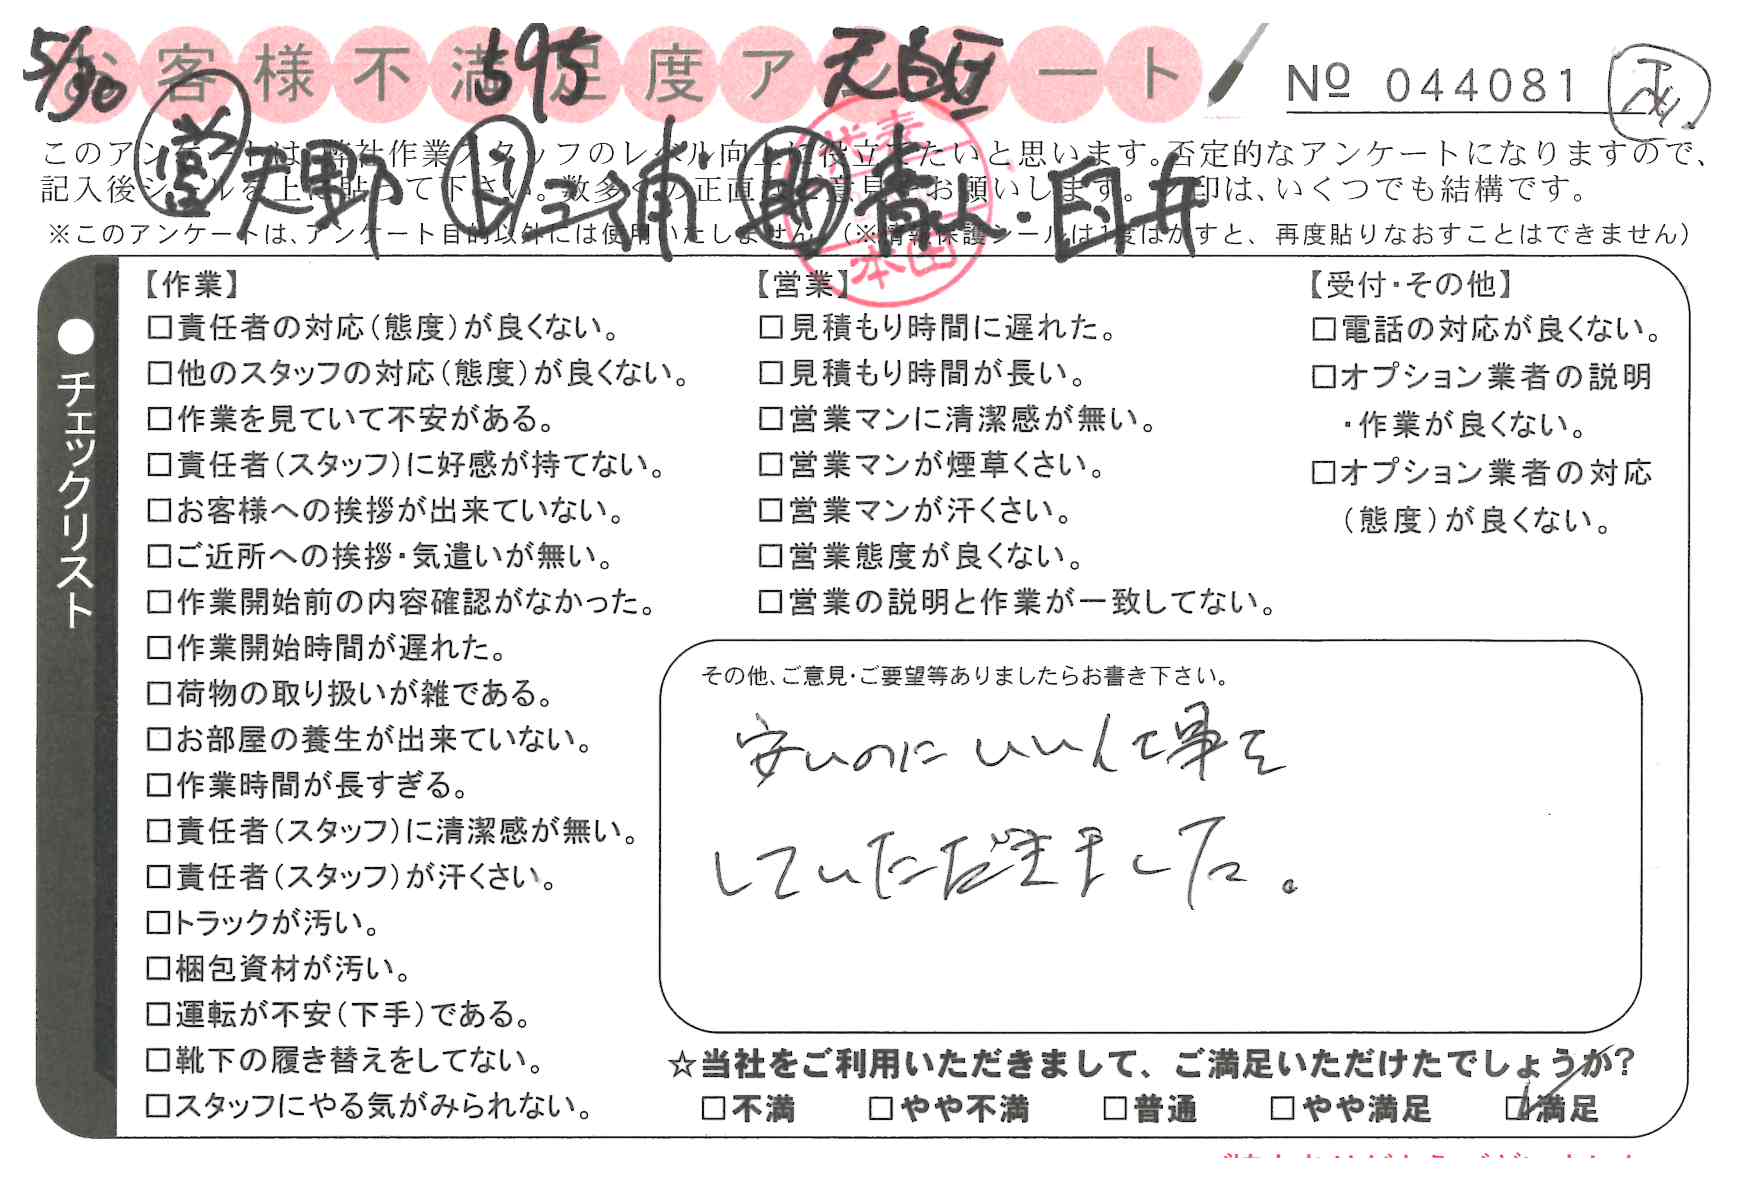 5/30 595 天白区
お客様不満足度アンケート
№ 044081
営 天野 三浦 青山・白井
このアンケートは、弊社作業スタッフのレベル向上に役立てたいと思います。否定的なアンケートになりますので、
記入後シールを上に貼って下さい。数多くの正直なご意見をお願いします。✓印は、いくつでも結構です。
※このアンケートは、アンケート目的以外には使用いたしません。(※情報保護シールは1度はがすと、再度貼りなおすことはできません)
代表
山本
●チェックリスト
【作業】
□責任者の対応(態度)が良くない。
□他のスタッフの対応(態度)が良くない。
□作業を見ていて不安がある。
□責任者(スタッフ)に好感が持てない。
□お客様への挨拶が出来ていない。
□ご近所への挨拶・気遣いが無い。
□作業開始前の内容確認がなかった。
□作業開始時間が遅れた。
□荷物の取り扱いが雑である。
□お部屋の養生が出来ていない。
□作業時間が長すぎる。
□責任者(スタッフ)に清潔感が無い。
□責任者(スタッフ)が汗くさい。
□トラックが汚い。
□梱包資材が汚い。
□運転が不安(下手)である。
□靴下の履き替えをしてない。
□スタッフにやる気がみられない。
【営業】
□見積もり時間に遅れた。
□見積もり時間が長い。
□営業マンに清潔感が無い。
□営業マンが煙草くさい。
□営業マンが汗くさい。
□営業態度が良くない。
□営業の説明と作業が一致してない。
【受付・その他】
□電話の対応が良くない。
□オプション業者の説明
・作業が良くない。
□オプション業者の対応
(態度)が良くない。
その他、ご意見・ご要望等ありましたらお書き下さい。
安いのにいい仕事を
していただきました。
☆当社をご利用いただきまして、ご満足いただけたでしょうか?
□不満 □やや不満 □普通 □やや満足 ☑満足